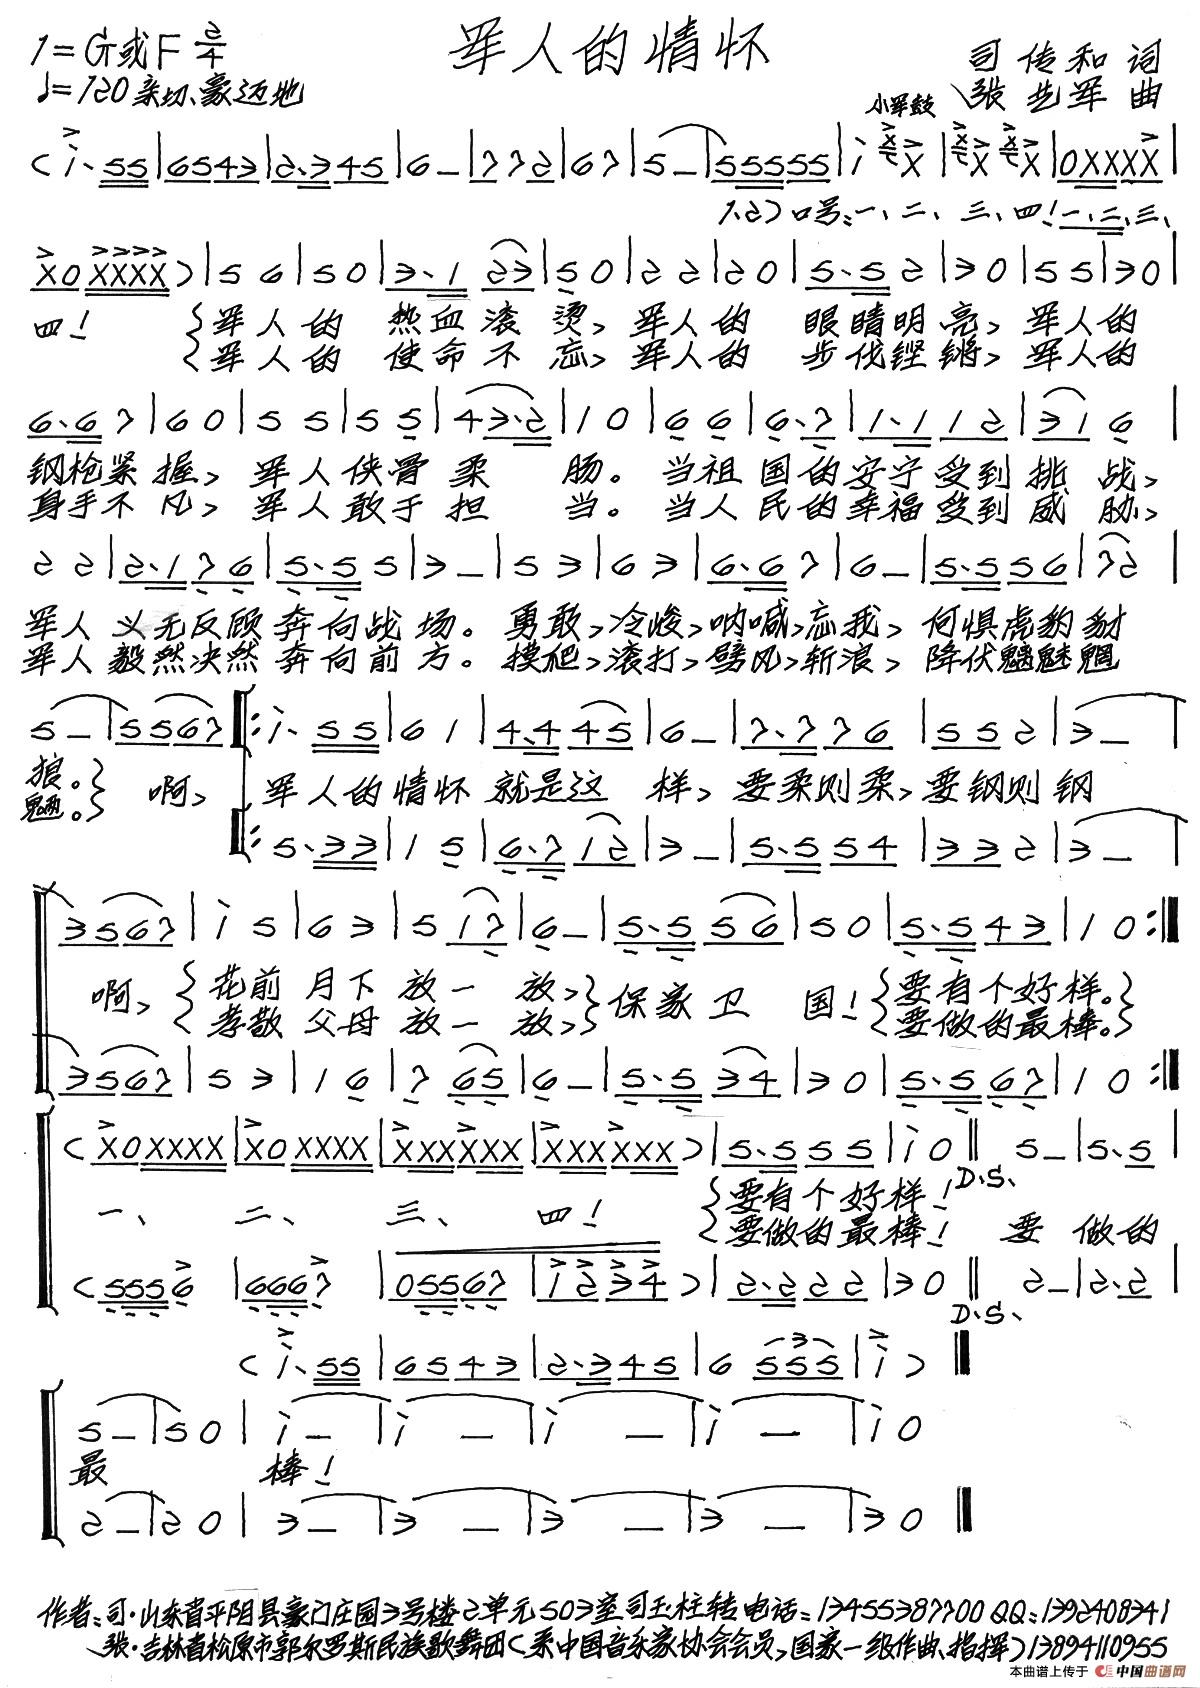 军人的情怀
1=G或F 2/4
♩=120 亲切、豪迈地
司传和 词
张艺军 曲
小军鼓
(i·55|6543|2·345|6–|772|67|5–|55555|i XX|XX XX|0XXXX|
1.2)口号:一、二、三、四!一、二、三、
X0XXXX)|56|50|3·1 23|50|22|20|5·52|30|55|30|
四! 军人的 热血滚烫, 军人的 眼睛明亮, 军人的
军人的 使命不忘, 军人的 步伐铿锵, 军人的
6·67|60|55|55|43·2|10|66|6·7|1·112|316|
钢枪紧握, 军人侠骨柔 肠。 当祖国的安宁受到挑战,
身手不凡, 军人敢于担 当。 当人民的幸福受到威胁,
22|2·176|5·55|3–|53|63|6·67|6–|5·556|72|
军人 义无反顾奔向战场。 勇敢,冷峻,呐喊,忘我, 何惧虎豹豺
军人 毅然决然奔向前方。 摸爬,滚打,劈风,斩浪, 降伏魑魅魍
5–|5567‖:i·55|61|4·445|6–|7·776|552|3–|
狼。 啊, 军人的情怀 就是这 样, 要柔则柔,要钢则钢
魉。
‖:5·33|15|6·712|3–|5·554|332|3–|
3567|i5|63|517|6–|5·556|50|5·543|10:‖
啊, 花前月下放一放, 保家卫 国! 要有个好样。
孝敬父母放一放, 要做的最棒。
3567|53|16|765|6–|5·534|30|5·567|10:‖
(X0XXXX|X0XXXX|XXXXXX|XXXXXX)|5·555|i0‖5–|5·5|
D.S.
一、 二、 三、 四! 要有个好样!
要做的最棒! 要 做的
(5556|6667|05567|1234)|2·222|30‖2–|2·2|
D.S.
(i·55|6543|2·345|6 555|i)‖
5–|50|i–|i–|i–|i–|i0
最 棒!
2–|20|3–|3–|3–|3–|30‖
作者:司·山东省平阴县豪门庄园3号楼2单元503室司玉柱转电话:13455387700 QQ:1392408341
张·吉林省松原市郭尔罗斯民族歌舞团(系中国音乐家协会会员,国家一级作曲、指挥)13894110955
本曲谱上传于 中国曲谱网